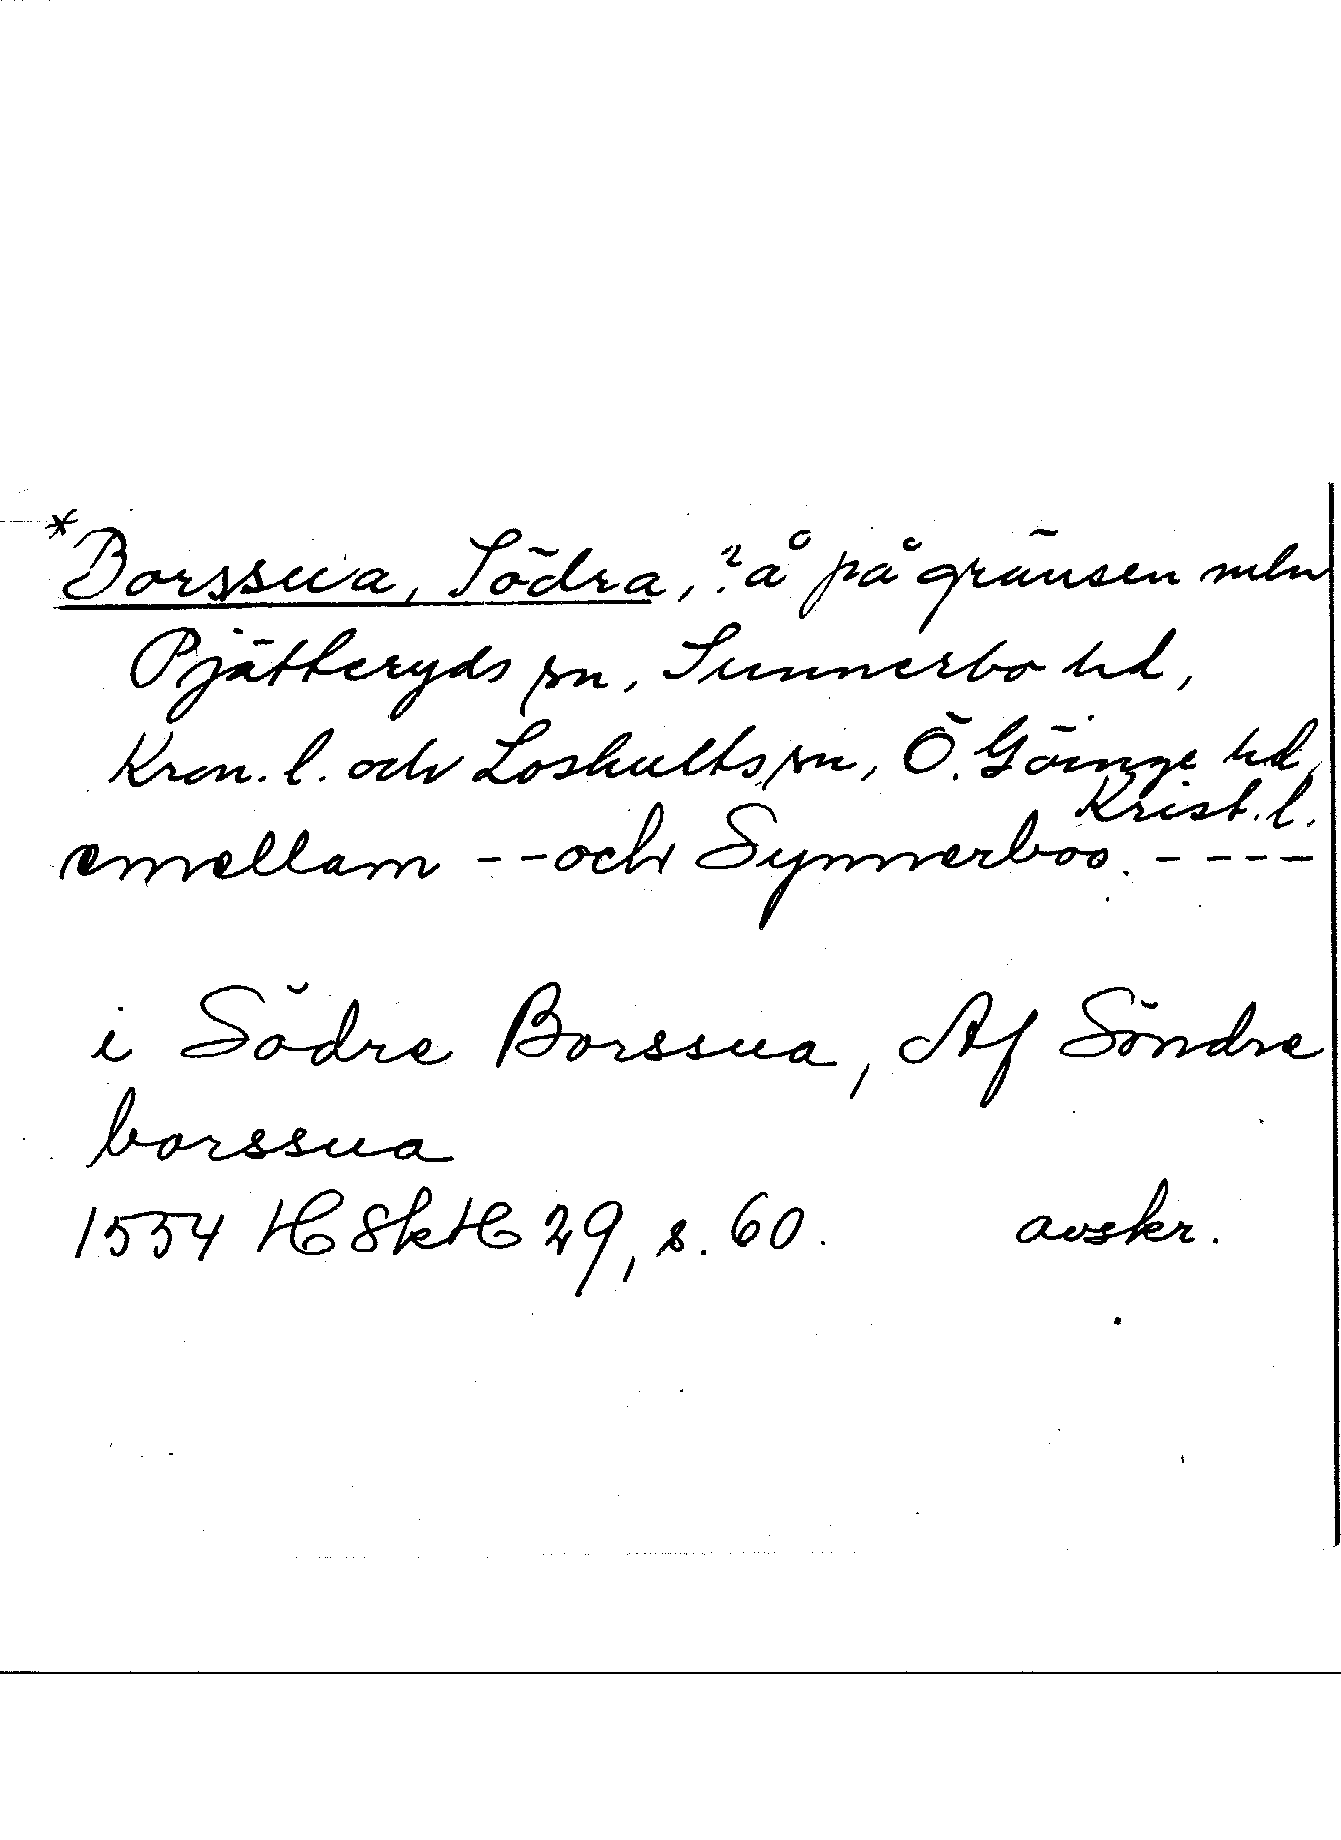 *Borssua, Södra, ?å på gränsen mln
Pjätteryds sn, Sunnerbo hd,
Kron. l. och Loshults sn, Ö. Göinge hd,
Krist. l.
emellam -- och Synnerboo. ----
i Södre Borssua, Af Söndre
borssua
1554 HSkH 29, s. 60. avskr.